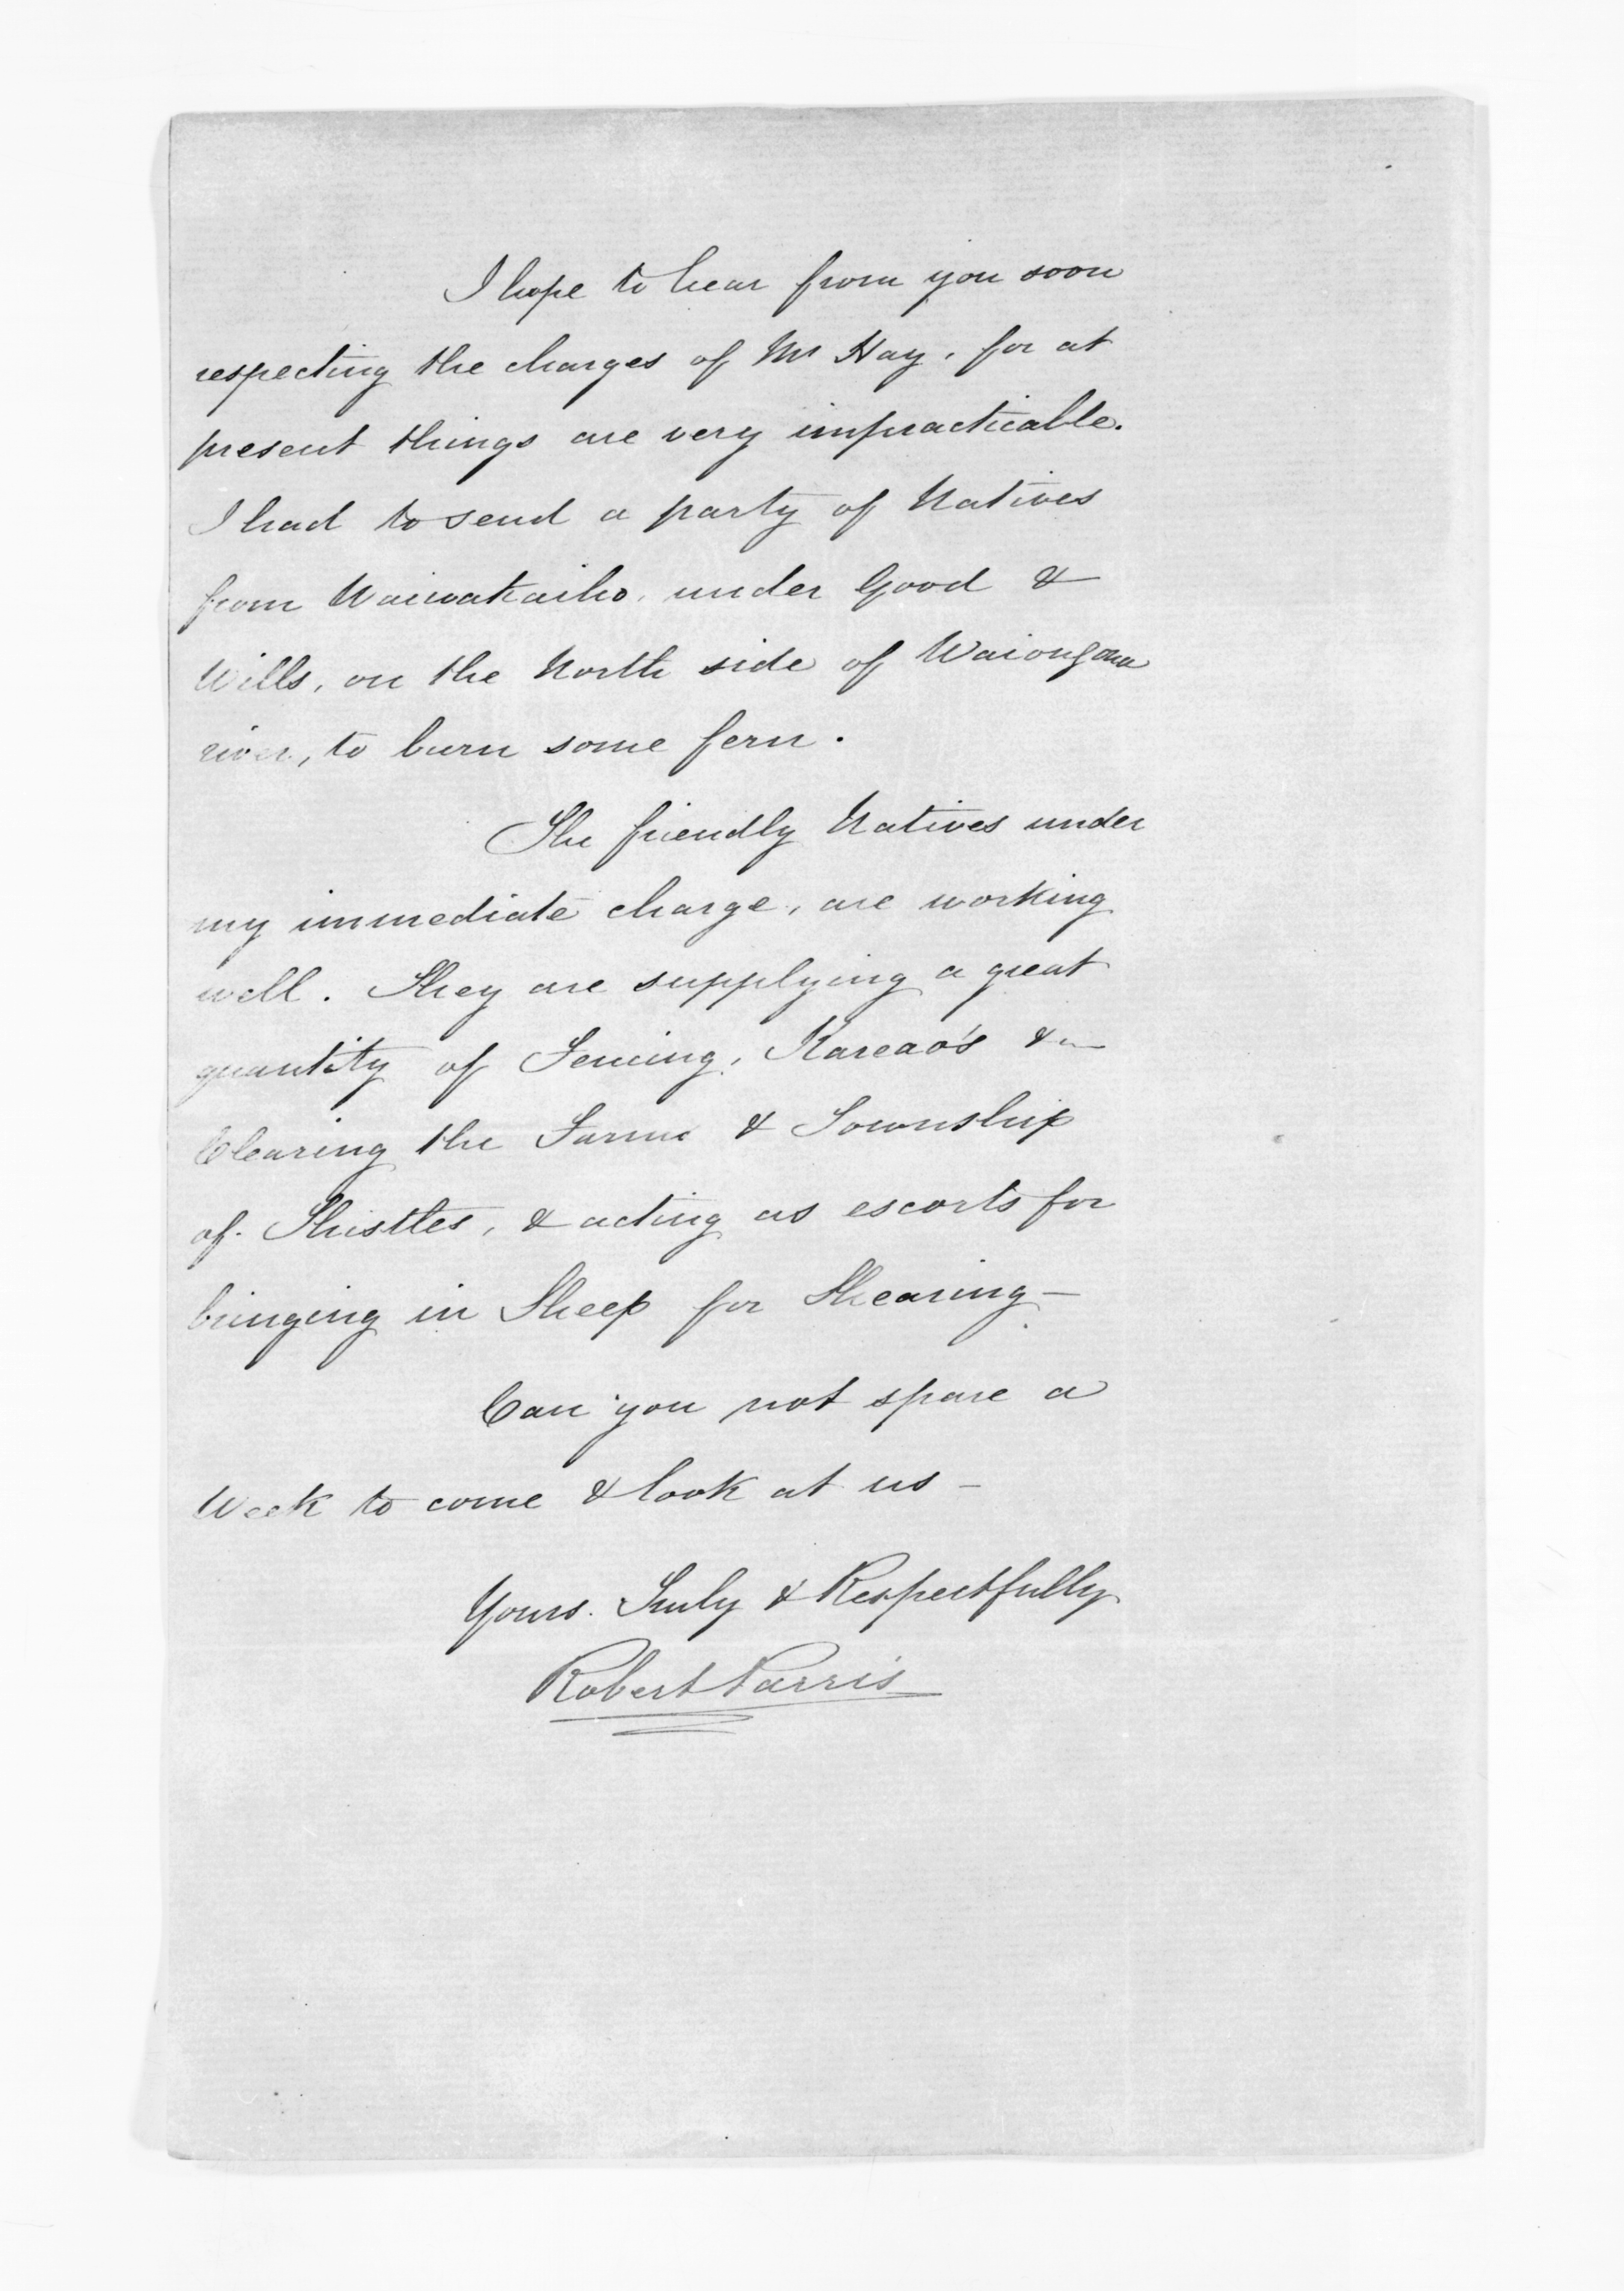 I hope to hear from you soon
respecting the charges of Mr Hay, for at
present things are very impracticable.
I had to send a party of Natives
from Waiwakaiho, under Good &
Wills, on the North side of Waiongona
river, to burn some fern.
The friendly Natives under
my immediate charge, are working
well. They are supplying a great
quantity of Fencing, Kareao's &c
Clearing the Farms & Township
of Thistles, & acting as escorts for
bringing in Sheep for Shearing -
Can you not spare a
Week to come & look at us -
Yours Truly & Respectfully
Robert Parris